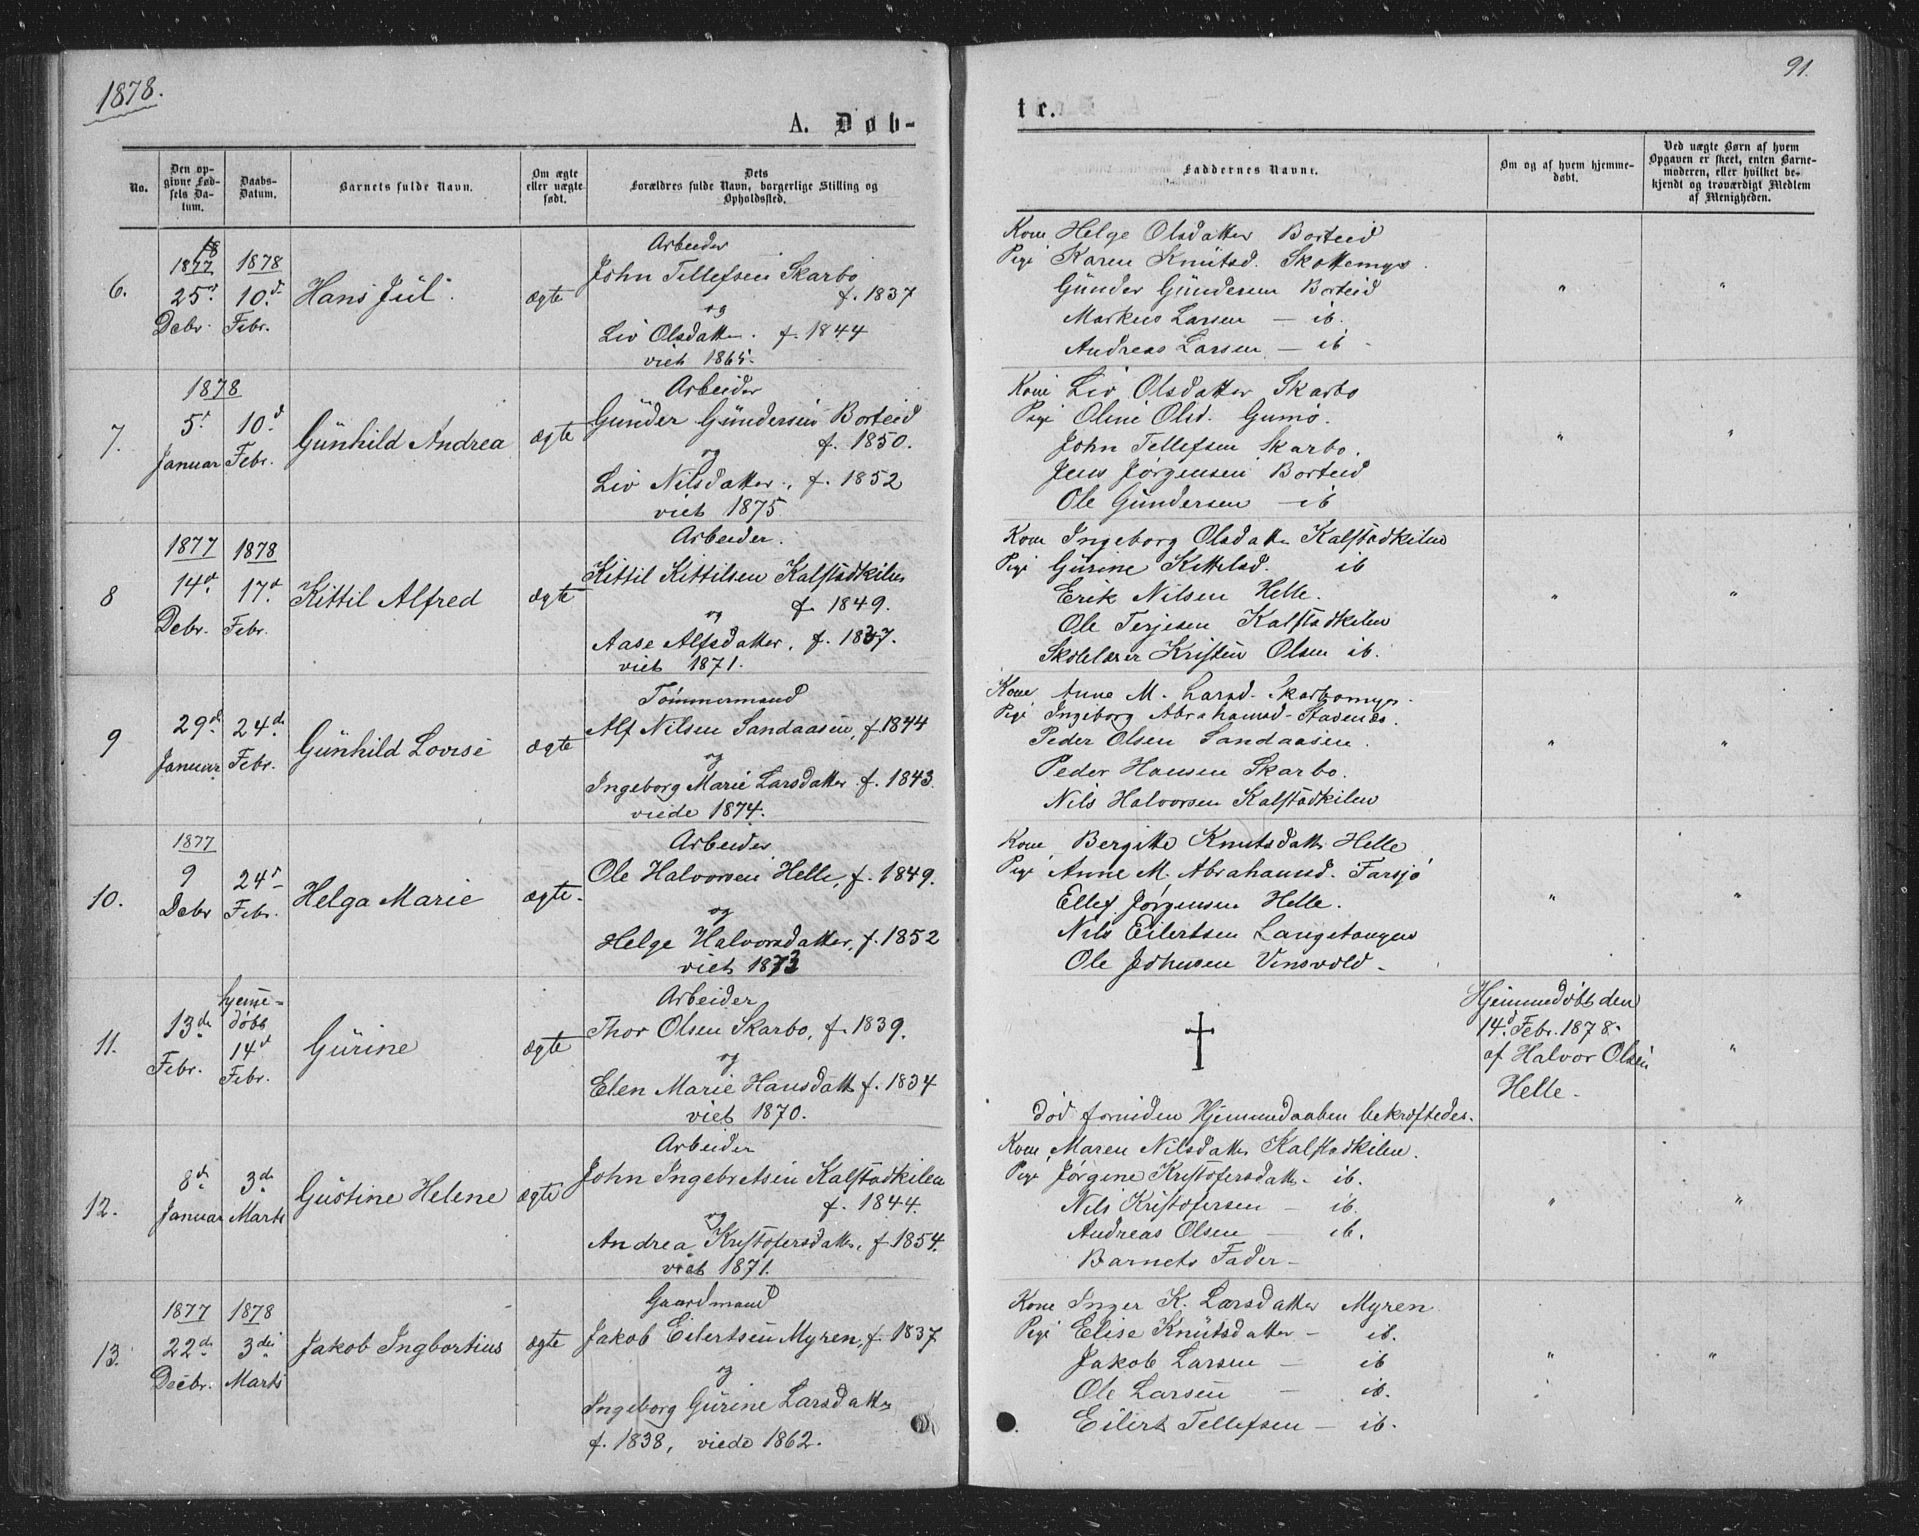 1878.
91.
A. Døb-
te.
No.
Den op-
givne Fød-
sels Da-
tum.
Daabs-
Datum.
Barnets fulde Navn.
Om ægte
eller uægte
født.
Dets
Forældres fulde Navn, borgerlige Stilling og
Opholdssted.
Faddernes Navne.
Om og af hvem hjemme-
døbt.
Ved uægte Børn af hvem
Opgaven er skeet, enten Barne-
moderen, eller hvilket be-
kjendt og troværdigt Medlem
af Menigheden.
6.
1877
25d
Decbr.
1878
10d
Febr.
Hans Jul
ægte
Arbeider
John Tellefsen Skarbo
f. 1837
og
Liv Olsdatter. f. 1844
viet 1865.
Kone Helge Olsdatter Borteid
Pige Karen Knutsd. Skottemyr
Gunder Gundersen Borteid
Markus Larsen — ib.
Andreas Larsen — ib.
"
"
7.
1878
5d
Januar
10d
Febr.
Gunhild Andrea
ægte
Arbeider
Gunder Gundersen Borteid
f. 1850.
og
Liv Nilsdatter, f. 1852
viet 1875.
Kone Liv Olsdatter Skarbo
Pige Oline Olsd. Gumø.
John Tellefsen Skarbo.
Jens Jørgensen Borteid
Ole Gundersen — ib
"
"
8
1877
14d
Debr.
1878
17d
Febr.
Kittil Alfred
ægte
Arbeider.
Kittil Kittilsen Kalstadkilen
f. 1849.
og
Aase Alfsdatter, f. 1847.
viet 1871.
Kone Ingeborg Olsdatter Kalstadkilen
Pige Gurine Kittelsd. ib
Erik Nilsen Helle.
Ole Terjesen Kalstadkilen
Skolelærer Kristen Olsen ib.
"
"
9
29d
Januar
24d
Febr.
Gunhild Lovise
ægte
Tømmermand
Alf Nilsen Sandaasen, f. 1844
og
Ingeborg Marie Larsdatter f. 1843.
viede 1874.
Kone Anne M. Larsd. Skarbomyr.
Pige Ingeborg Abrahamsd. Stadenæs.
Peder Olsen Sandaasen.
Peder Hansen Skarbo.
Nils Halvorsen Kalstadkilen
"
"
10.
1877
9
Debr
24d
Febr.
Helga Marie
ægte.
Arbeider
Ole Halvorsen Helle, f. 1849.
og
Helge Halvorsdatter, f. 1852
viet 1873
Kone Bergitte Knutsdatter Helle
Pige Anne M. Abrahamsd. Farsjø
Ellef Jørgensen Helle.
Nils Eilertsen Langetangen
Ole Johnsen Vinsvold.
"
"
11.
13de
Febr.
hjeme-
døbt
14d
Febr.
Gurine
ægte
Arbeider
Thor Olsen Skarbo, f. 1839.
og
Elen Marie Hansdatt. f. 1834
viet 1870.
†
død forinden Hjemmedaaben bekræftedes.
Hjemmedøbt den
14d Febr. 1878.
af Halvor Olsen
Helle.
"
12.
8de
Januar
3de
Marts
Gustine Helene
ægte
Arbeider
John Ingebretsen Kalstadkilen
f. 1844.
og
Andrea Kristofersdatter, f. 1854.
viet 1871.
Kone Maren Nilsdatter Kalstadkilen.
Pige Jørgine Kristofersdatt. ib.
Nils Kristofersen — ib.
Andreas Olsen — ib.
Barnets Fader.
"
"
13.
1877
22de
Decbr.
1878
3die
Marts
Jakob Ingbortius
ægte
Gaardmand
Jakob Eilertsen Myren, f. 1837
og
Ingeborg Gurine Larsdatter
f. 1838, viede 1862.
Kone Inger K. Larsdatter Myren
Pige Elise Knutsdatter — ib.
Jakob Larsen — ib
Ole Larsen — ib.
Eilert Tellefsen — ib.
"
"